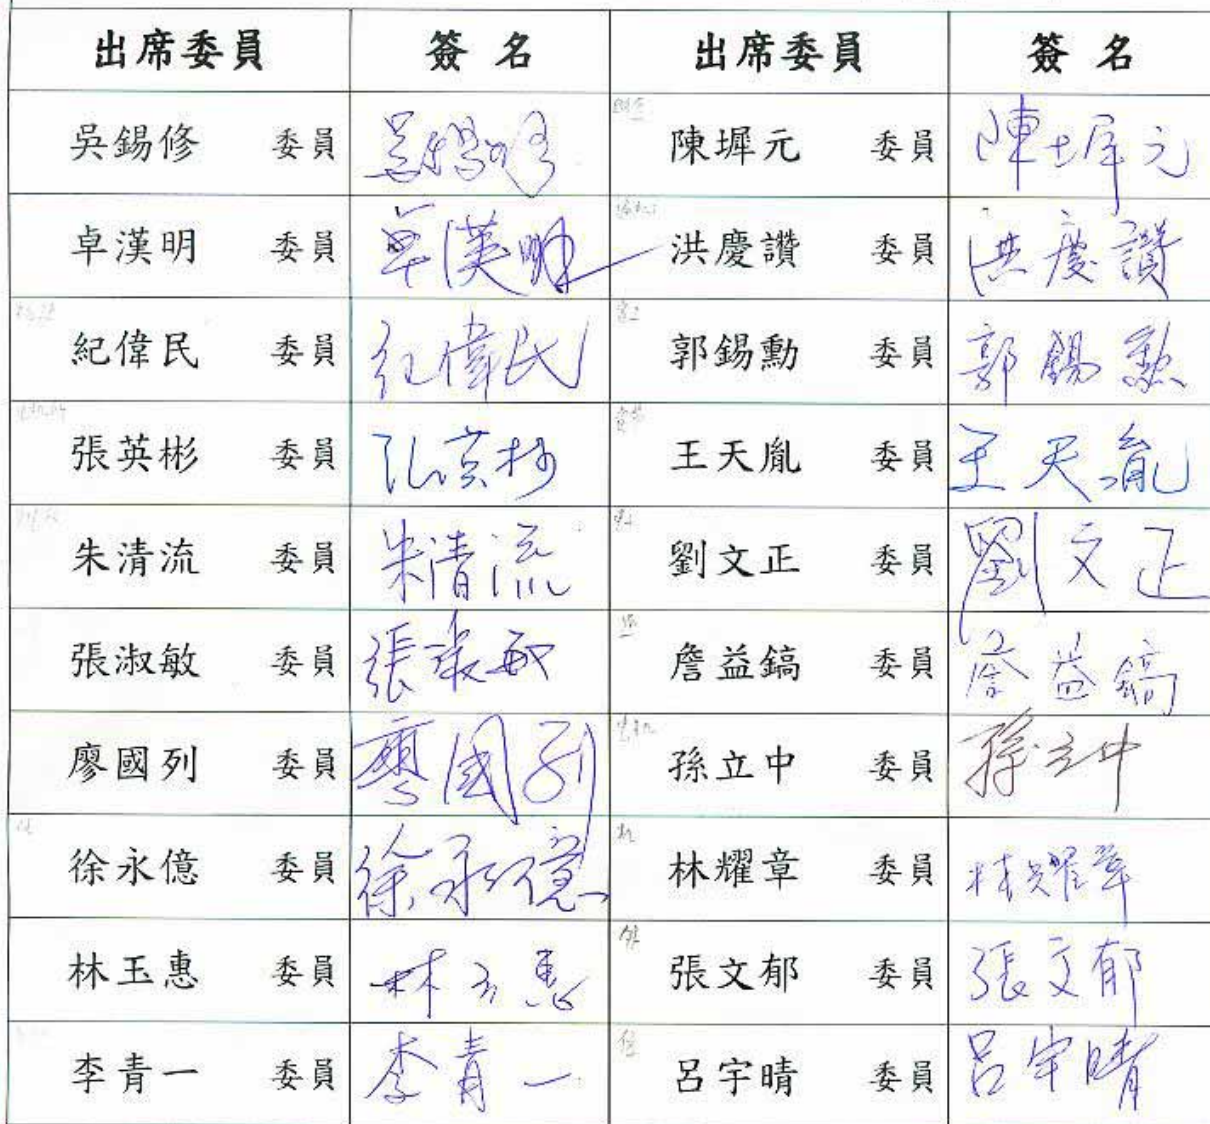 出席委員 簽名 出席委員 簽名
吳錫修 委員 吳錫修 陳墀元 委員 陳墀元
卓漢明 委員 卓漢明 洪慶讚 委員 洪慶讚
紀偉民 委員 紀偉民 郭錫勳 委員 郭錫勳
張英彬 委員 張英彬 王天胤 委員 王天胤
朱清流 委員 朱清流 劉文正 委員 劉文正
張淑敏 委員 張淑敏 詹益鎬 委員 詹益鎬
廖國列 委員 廖國列 孫立中 委員 孫立中
徐永億 委員 徐永億 林耀章 委員 林耀章
林玉惠 委員 林玉惠 張文郁 委員 張文郁
李青一 委員 李青一 呂宇晴 委員 呂宇晴